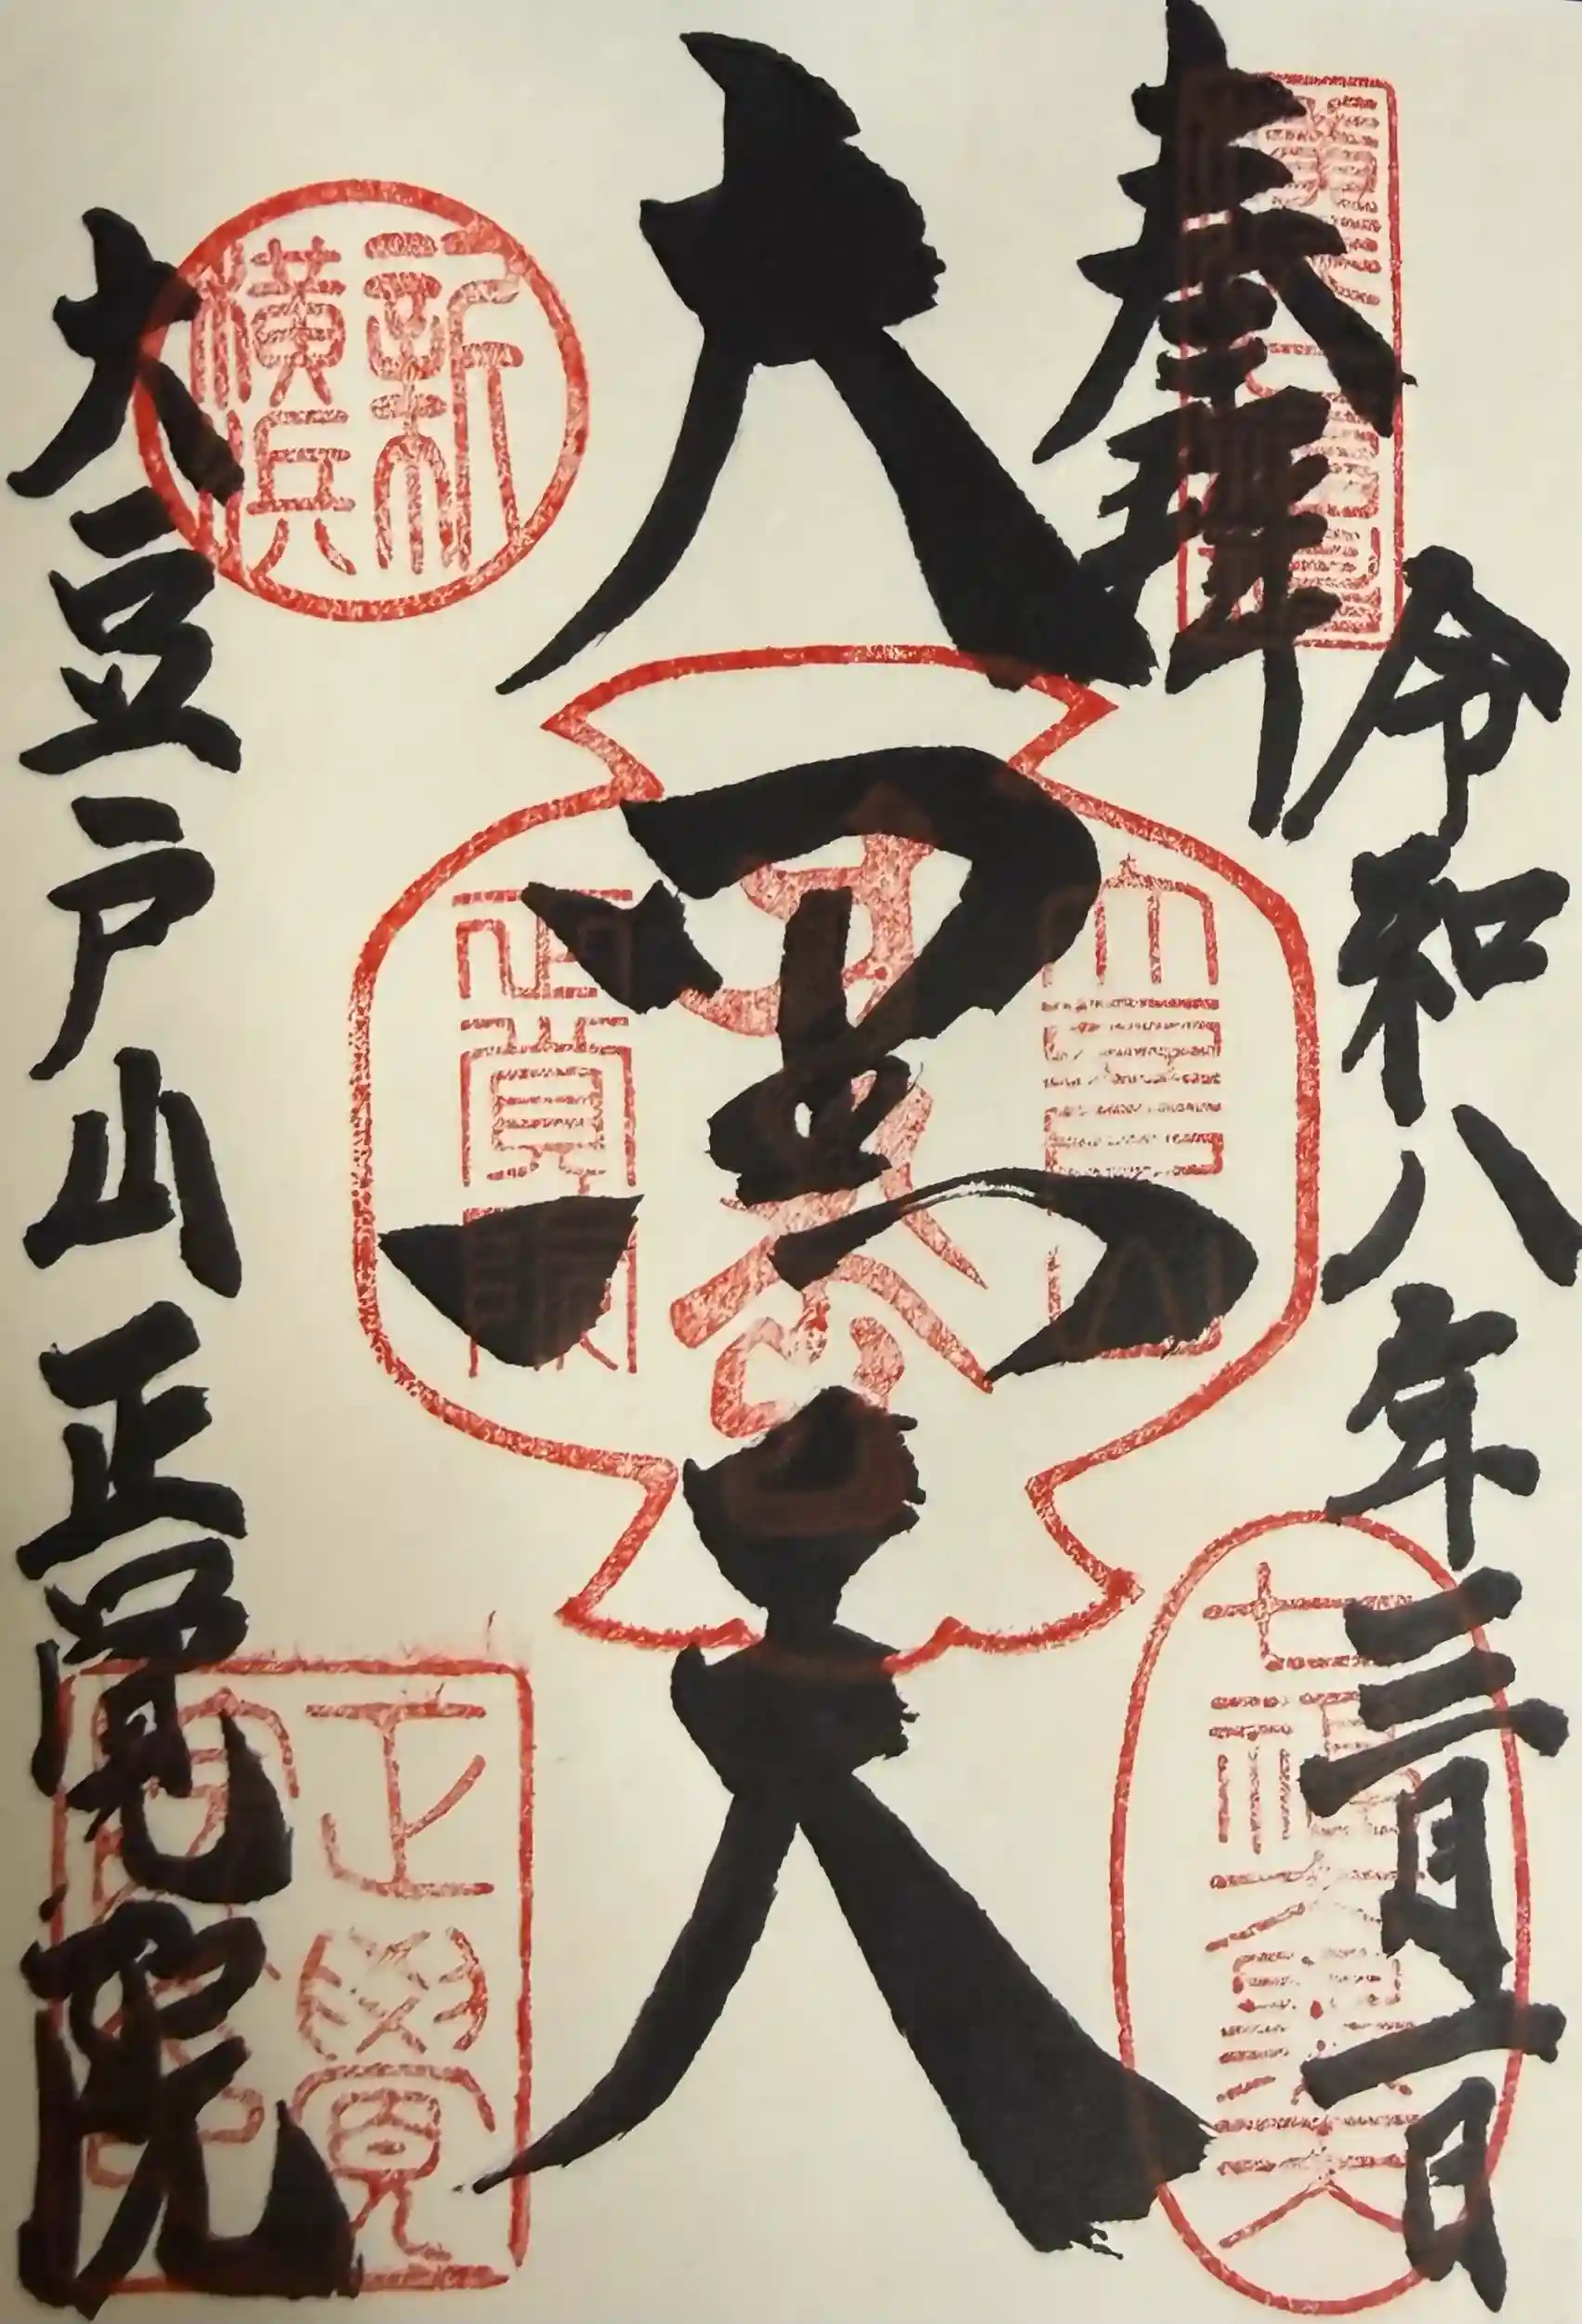 奉拝
令和八年三月一日
大黒天
新
横浜
大豆戸山正覚院
正覺